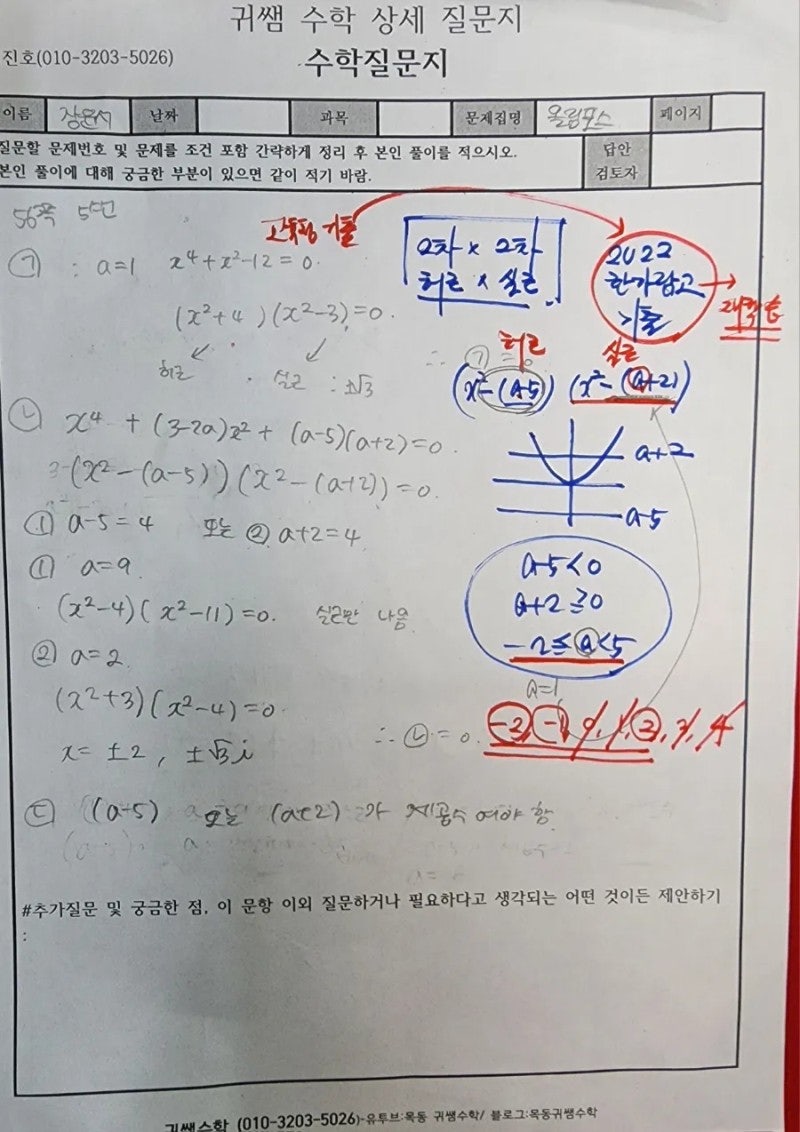 귀쌤 수학 상세 질문지
진호(010-3203-5026)
수학질문지
이름 장문서 날짜 과목 문제집명 올림포스 페이지
질문할 문제번호 및 문제를 조건 포함 간략하게 정리 후 본인 풀이를 적으시오.
본인 풀이에 대해 궁금한 부분이 있으면 같이 적기 바람.
답안
검토자
56쪽 5번
고득점 기출
2차 x 2차
허근 x 실근
2022
한가람고
기출
ㄱ : a=1 x⁴+x²-12=0.
(x²+4)(x²-3)=0.
허근 실근 : ±√3
∴ ㄱ = 0
허근 실근
(x²-(a-5)) (x²-(a+2))
ㄴ x⁴ + (3-2a)x² + (a-5)(a+2)=0.
(x²-(a-5))(x²-(a+2))=0.
a+2
a-5
① a-5=4 또는 ② a+2=4
① a=9
(x²-4)(x²-11)=0. 실근만 나옴
② a=2
(x²+3)(x²-4)=0
x= ±2, ±√3i
a-5<0
a+2≥0
-2≤a<5
a=1
∴ ㄴ = 0.
-2, -1, 0, 1, 2, 3, 4
ㄷ (a-5) 또는 (a+2)가 제곱수 여야 함
#추가질문 및 궁금한 점, 이 문항 이외 질문하거나 필요하다고 생각되는 어떤 것이든 제안하기
:
귀쌤수학 (010-3203-5026)-유투브:목동 귀쌤수학/ 블로그:목동귀쌤수학